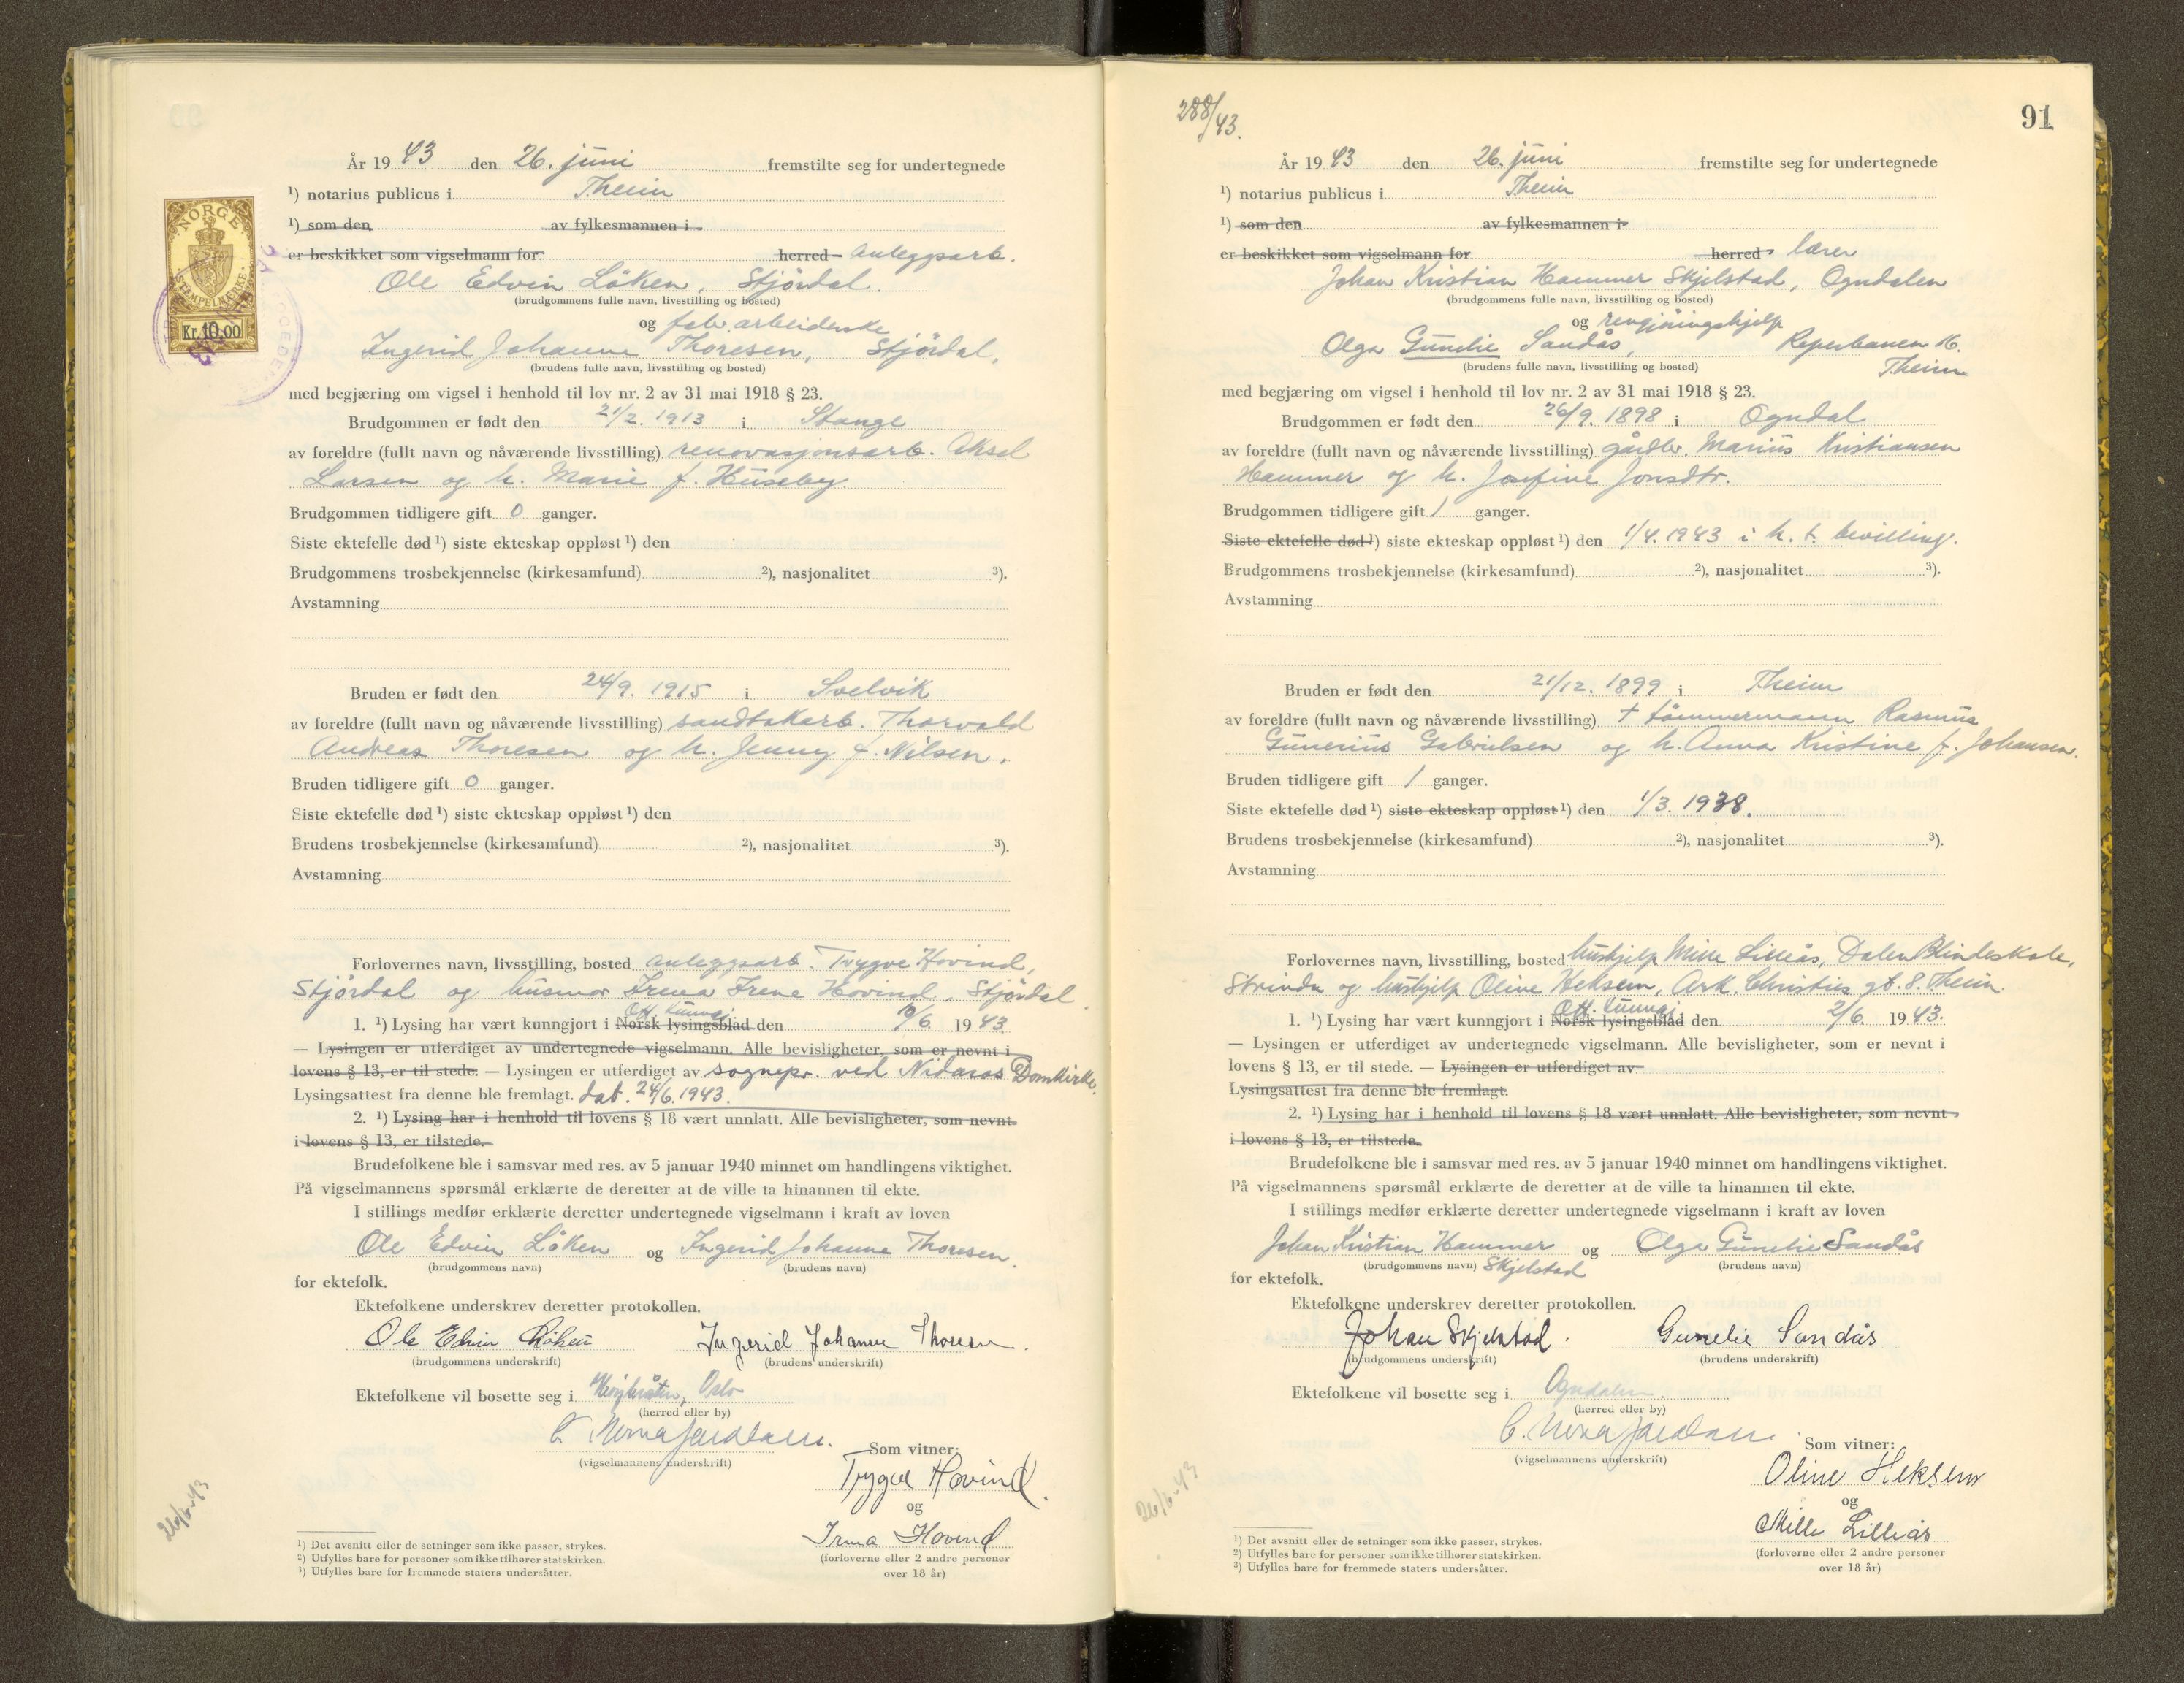 År 19 43 den 26. juni fremstilte seg for undertegnede
¹) notarius publicus i Theim
¹) som den av fylkesmannen i
er beskikket som vigselmann for herred anleggsarb.
Ole Edvin Löken, Stjördal.
(brudgommens fulle navn, livsstilling og bosted)
og fabr. arbeiderske
Ingerid Johanne Thoresen, Stjördal.
(brudens fulle navn, livsstilling og bosted)
med begjæring om vigsel i henhold til lov nr. 2 av 31 mai 1918 § 23.
Brudgommen er født den 21/2. 1913 i Stange
av foreldre (fullt navn og nåværende livsstilling) renovasjonsarb. Aksel
Larsen og h. Marie f. Huseby.
Brudgommen tidligere gift 0 ganger.
Siste ektefelle død ¹) siste ekteskap oppløst ¹) den
Brudgommens trosbekjennelse (kirkesamfund) ²), nasjonalitet ³).
Avstamning
Bruden er født den 24/9. 1915 i Svelvik
av foreldre (fullt navn og nåværende livsstilling) sandtakarb. Thorvald
Andreas Thoresen og h. Jenny f. Nilsen.
Bruden tidligere gift 0 ganger.
Siste ektefelle død ¹) siste ekteskap oppløst ¹) den
Brudens trosbekjennelse (kirkesamfund) ²), nasjonalitet ³).
Avstamning
Forlovernes navn, livsstilling, bosted anleggsarb. Trygve Hovind,
Stjördal og husmor Irma Irene Hovind, Stjördal
Off. kunngj.
1. ¹) Lysing har vært kunngjort i Norsk lysingsblad den 10/6 19 43
— Lysingen er utferdiget av undertegnede vigselmann. Alle bevisligheter, som er nevnt i
lovens § 13, er til stede. — Lysingen er utferdiget av sognepr. ved Nidaros Domkirke.
Lysingsattest fra denne ble fremlagt. dat. 24/6. 1943.
2. ¹) Lysing har i henhold til lovens § 18 vært unnlatt. Alle bevisligheter, som nevnt
i lovens § 13, er tilstede.
Brudefolkene ble i samsvar med res. av 5 januar 1940 minnet om handlingens viktighet.
På vigselmannens spørsmål erklærte de deretter at de ville ta hinannen til ekte.
I stillings medfør erklærte deretter undertegnede vigselmann i kraft av loven
Ole Edvin Löken og Ingerid Johanne Thoresen.
(brudgommens navn) (brudens navn)
for ektefolk.
Ektefolkene underskrev deretter protokollen.
Ole Edvin Löken Ingerid Johanne Thoresen.
(brudgommens underskrift) (brudens underskrift)
Ektefolkene vil bosette seg i Oslo
(herred eller by)
(vigselmannens underskrift)
Som vitner:
Trygve Hovind.
og
Irma Hovind
(forloverne eller 2 andre personer
over 18 år)
26/6-43
¹) Det avsnitt eller de setninger som ikke passer, strykes.
²) Utfylles bare for personer som ikke tilhører statskirken.
³) Utfylles bare for fremmede staters undersåtter.
NORGE
STEMPELMERKE
Kr. 10,00
288/43.
91
År 19 43 den 26. juni fremstilte seg for undertegnede
¹) notarius publicus i Theim
¹) som den av fylkesmannen i
er beskikket som vigselmann for herred lærer
Johan Kristian Hammer Skjelstad, Ogndalen
(brudgommens fulle navn, livsstilling og bosted)
og rengjöringshjelp
Olga Gunelie Sandås, Reperbanen 16.
Theim
(brudens fulle navn, livsstilling og bosted)
med begjæring om vigsel i henhold til lov nr. 2 av 31 mai 1918 § 23.
Brudgommen er født den 26/9. 1898 i Ogndal
av foreldre (fullt navn og nåværende livsstilling) gårdbr. Marius Kristiansen
Hammer og h. Josefine Jonsdtr.
Brudgommen tidligere gift 1 ganger.
Siste ektefelle død ¹) siste ekteskap oppløst ¹) den 1/4. 1943 i h. t. bevilling.
Brudgommens trosbekjennelse (kirkesamfund) ²), nasjonalitet ³).
Avstamning
Bruden er født den 21/12. 1899 i Theim
av foreldre (fullt navn og nåværende livsstilling) † tömmermann Rasmus
Gunerius Gabrielsen og h. Anna Kristine f. Johansen.
Bruden tidligere gift 1 ganger.
Siste ektefelle død ¹) siste ekteskap oppløst ¹) den 1/3. 1938.
Brudens trosbekjennelse (kirkesamfund) ²), nasjonalitet ³).
Avstamning
Forlovernes navn, livsstilling, bosted hushjelp Mille Lilleås, Dalen Blindeskole,
Strinda og hushjelp Oline Heksem, Ark. Christies gt. 8. Theim.
Off. kunngj
1. ¹) Lysing har vært kunngjort i Norsk lysingsblad den 2/6. 19 43.
— Lysingen er utferdiget av undertegnede vigselmann. Alle bevisligheter, som er nevnt i
lovens § 13, er til stede. — Lysingen er utferdiget av
Lysingsattest fra denne ble fremlagt.
2. ¹) Lysing har i henhold til lovens § 18 vært unnlatt. Alle bevisligheter, som nevnt
i lovens § 13, er tilstede.
Brudefolkene ble i samsvar med res. av 5 januar 1940 minnet om handlingens viktighet.
På vigselmannens spørsmål erklærte de deretter at de ville ta hinannen til ekte.
I stillings medfør erklærte deretter undertegnede vigselmann i kraft av loven
Johan Kristian Hammer og Olga Gunelie Sandås
(brudgommens navn) Skjelstad (brudens navn)
for ektefolk.
Ektefolkene underskrev deretter protokollen.
Johan Skjelstad. Gunelie Sandås
(brudgommens underskrift) (brudens underskrift)
Ektefolkene vil bosette seg i Ogndalen
(herred eller by)
(vigselmannens underskrift)
Som vitner:
Oline Heksem
og
Mille Lilleås
(forloverne eller 2 andre personer
over 18 år)
26/6-43
¹) Det avsnitt eller de setninger som ikke passer, strykes.
²) Utfylles bare for personer som ikke tilhører statskirken.
³) Utfylles bare for fremmede staters undersåtter.